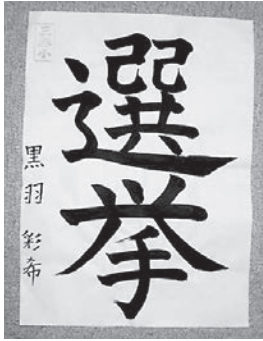 選挙
黒羽彩希